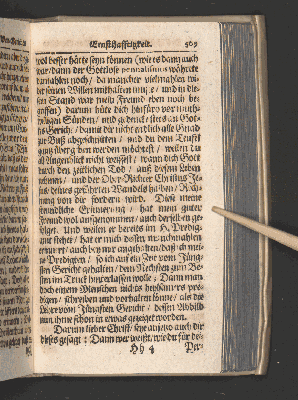 Ernsthafftigkeit. 509
wol besser hätte seyn können / wie es dann auch
war / dann der Gottlose währete
niemahlen noch / da mancher vielmahlen wi-
der seinen Willen mithalten muste / und in die-
sen Stand war mein Freund eben noch be-
griffen) darum hüte dich hinfüro vor muth-
willigen Sünden / und gedencke stets an Gott
es Gericht / damit dir nicht endlich alle Gnad
zur Buß abgeschnitten / und du dem Teuffel
gantz übergeben werden möchtest / weilen du
all Augenblick nicht weissest / wann dich Gott
durch den zeitlichen Tod / auß diesem Leben
nehmen / und der Ober-Richter Christus Je-
sus deines geführten Wandels halben / Rech-
nung von dir fordern wird. Diese meine
freundliche Erinnerung / hat mein guter
Freund wol auffgenommen / auch derselben ge-
folget. Und weilen er bereits im H. Predig-
amt stehet / hat er mich dessen nochmahlen
erinnert / auch bey mir angehalten / daß ich mei-
ne Predigten / so ich auff ein Zeit vom Jüng-
sten Gericht gehalten / dem Nechsten zum Be-
sten im Truck hinderlassen wolle / Dann man
doch einem Menschen nichts heylsamers pre-
digen / schreiben und vorhalten könne / als die
Lehr vom Jüngsten Gericht / dessen Abbild-
nun ihme schon in etwas gezeiget worden.
Darum lieber Christ / seye anjetzo auch dir
dieses gesagt: Dann wer weißt / wie du für de-
Hh 4 Per-